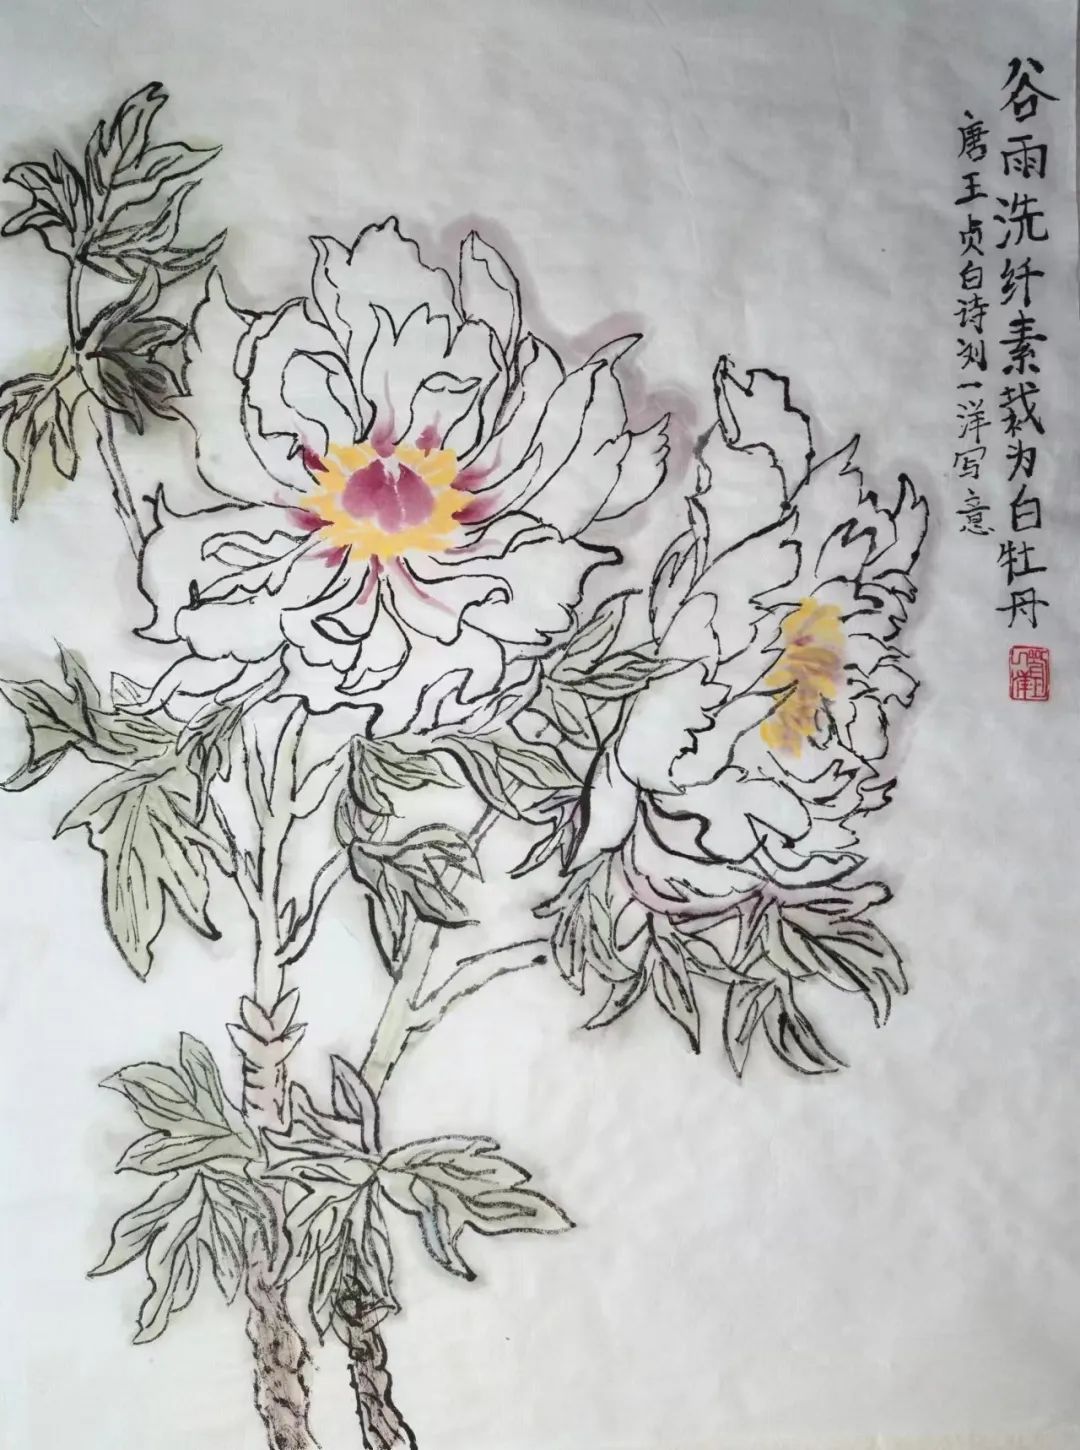 谷雨洗纤素裁为白牡丹
唐王贞白诗刘一洋写意